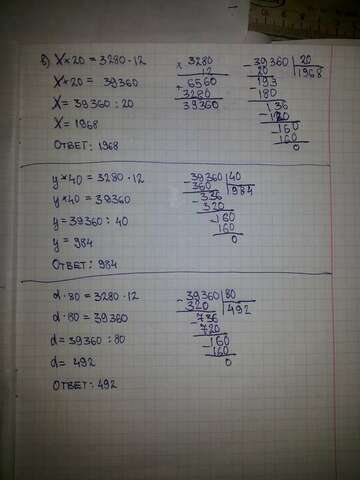 в) X × 20 = 3280 · 12
X × 20 = 39360
X = 39360 : 20
X = 1968
ОТВЕТ: 1968
× 3280
12
+ 6560
3280
39360
- 39360 | 20
20 | 1968
- 193
180
136
- 120
- 160
160
0
y × 40 = 3280 · 12
y × 40 = 39360
y = 39360 : 40
y = 984
ОТВЕТ: 984
- 39360 | 40
360 | 984
- 336
320
- 160
160
0
d · 80 = 3280 · 12
d · 80 = 39360
d = 39360 : 80
d = 492
ОТВЕТ: 492
- 39360 | 80
320 | 492
- 736
720
- 160
160
0